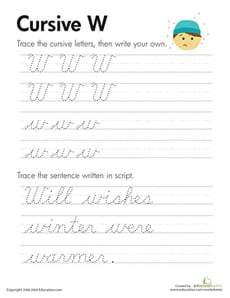 Cursive W
Trace the cursive letters, then write your own.
W W W
W W W
w w w w
w w w w
Trace the sentence written in script.
Will wishes
winter were
warmer.
Copyright 2008-2009 Education.com
Education.com